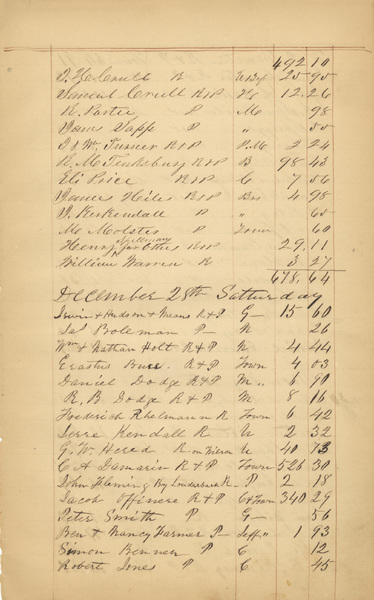 492 10
R 25 95
Samuel R&P 12.26
R. Porter P Mc 98
James Sapp P " 50
J & Wm Turner R&P P.M. 2 24
R. McTinksbury R&P B 98 43
Eli Price R&P C 7 56
James Hiles R&P 4 98
J. Kuykendall P " 60
Mc Molster P Town 60
Henry for R&P 29,11
William Warren R 3 27
678,64
December 28th Satturday
Irwin & Hudson & Means R&P G 15 60
Jas Boleman P N 26
Wm & Nathan Holt R&P N 4 44
Erastus R&P Town 4 03
Daniel Dodge R&P M " 6 90
R. B Dodge R&P M 8 16
Frederich R Town 6 42
Jesse Kendall R U 2 32
G. W. Hered R on U 40 13
C A Damarin R&P Town 526 30
John Fleming By R. P 2 18
Jacob Offnere R&P C&Town 340 29
Peter Smith P G 56
Ben & Nancy Farmer P Jeff" 1 93
Simon Benner P C 12
Robert Jones P C 45